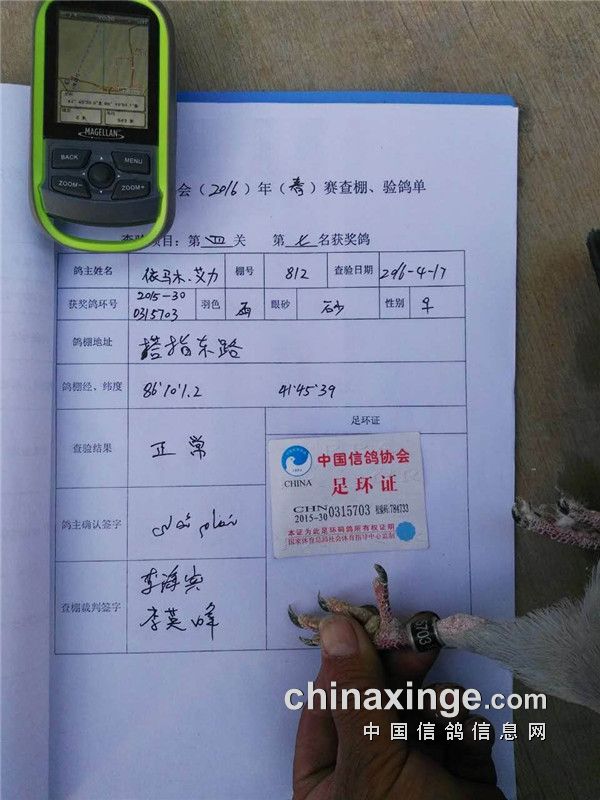 MAGELLAN
BACK
MENU
ZOOM−
ZOOM+
会（2016）年（春）赛查棚、验鸽单
查验项目：第 四 关 第 七 名获奖鸽
鸽主姓名 依马木.艾力 棚号 812 查验日期 2016-4-17
获奖鸽环号 2015-30 0315703 羽色 雨 眼砂 砂 性别 ♀
鸽棚地址 塔指东路
鸽棚经、纬度 86°10'1.2 41°45'39
查验结果 正常 足环证
中国信鸽协会
CHINA
足环证
CHN
2015-30 0315703
本证为此足环码鸽所有权证明
国家体育总局社会体育指导中心监制
鸽主确认签字
查棚裁判签字 李海宾
李英峰
5703
chinaxinge.com
中国信鸽信息网